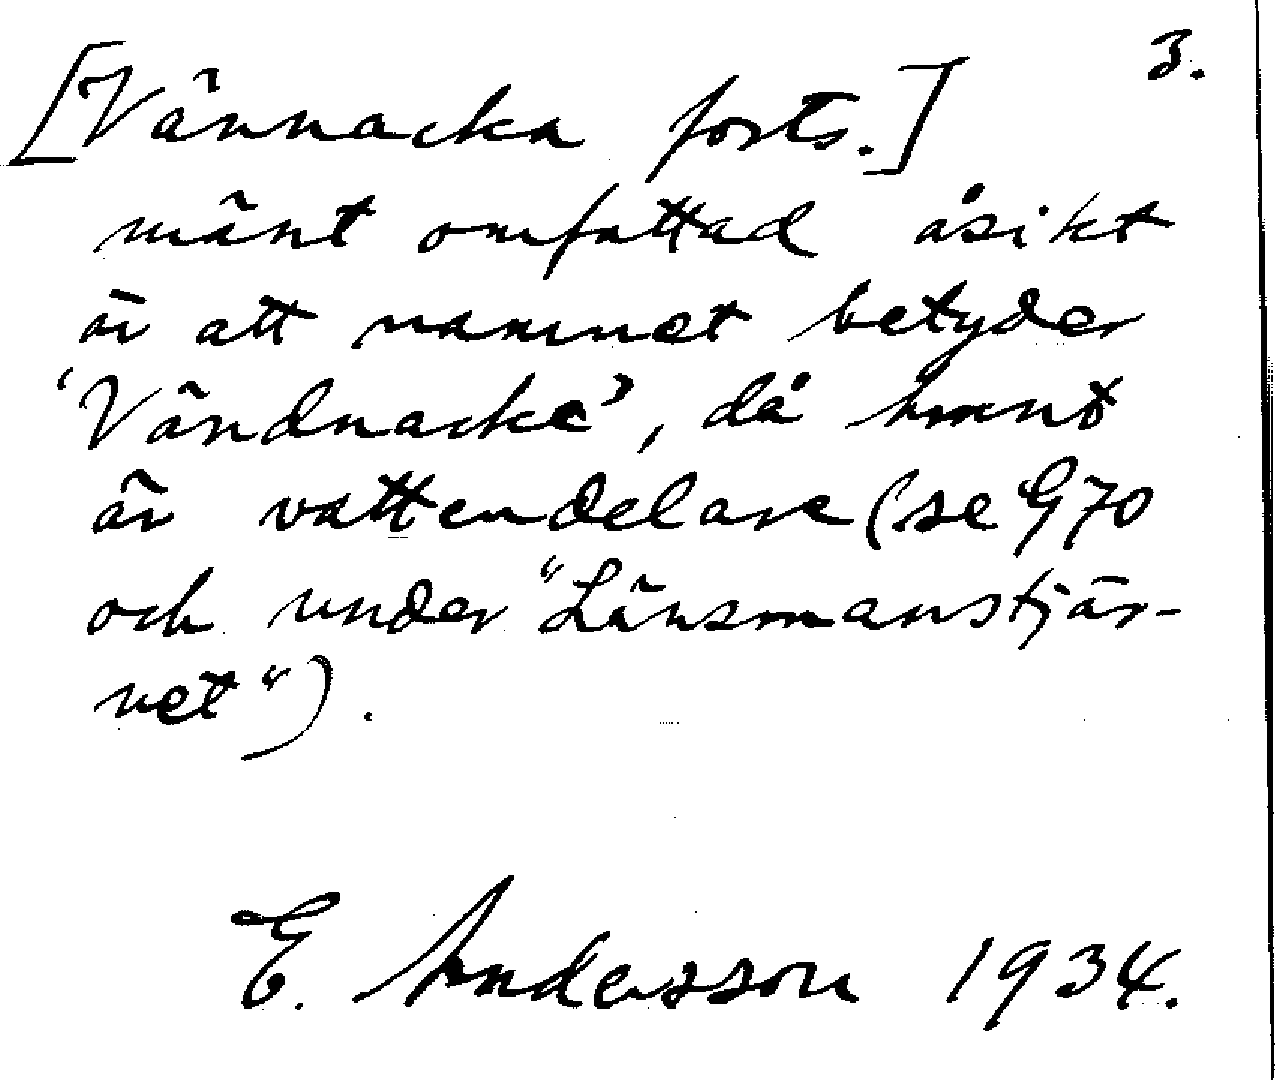 3.
[Vännacka forts.]
mänt omfattad åsikt
är att namnet betyder
'Vändnacke', då
är vattendelare (se G70
och under "Länsmanstjär-
net").
E. Andersson 1934.